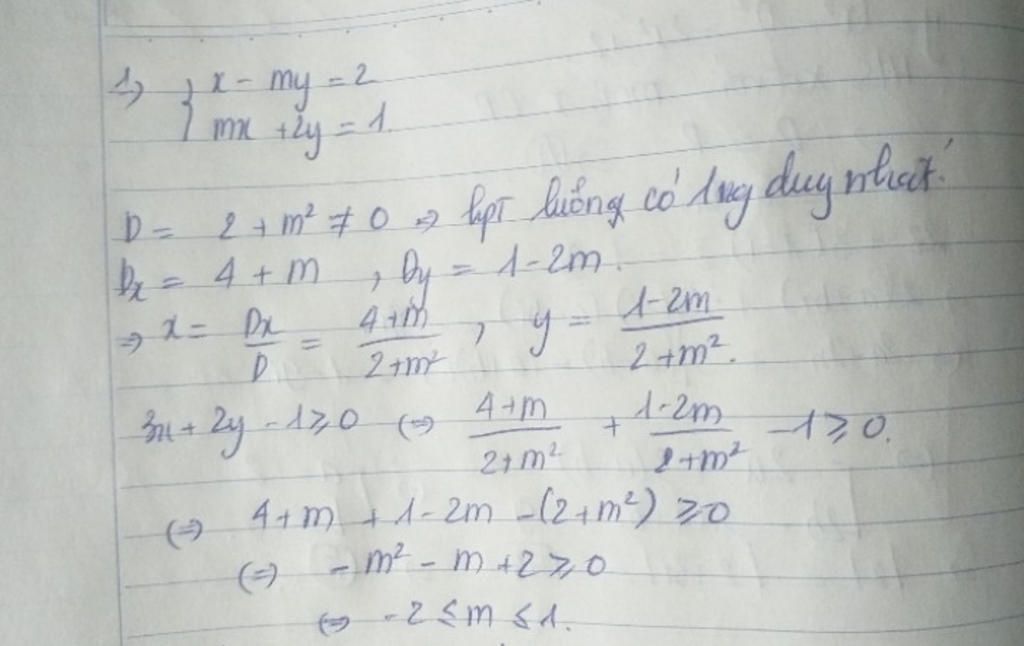 1) { x - my = 2
{ mx + 2y = 1.
D = 2 + m² ≠ 0 ⇒ hpt luông có 1 ng duy nhất.
Dx = 4 + m , Dy = 1 - 2m.
⇒ x = Dx/D = (4+m)/(2+m²) , y = (1-2m)/(2+m²).
3x + 2y - 1 ≥ 0 (⇒) (4+m)/(2+m²) + (1-2m)/(2+m²) - 1 ≥ 0.
(⇒) 4+m + 1-2m - (2+m²) ≥ 0
(⇒) - m² - m + 2 ≥ 0
(⇒) -2 ≤ m ≤ 1.